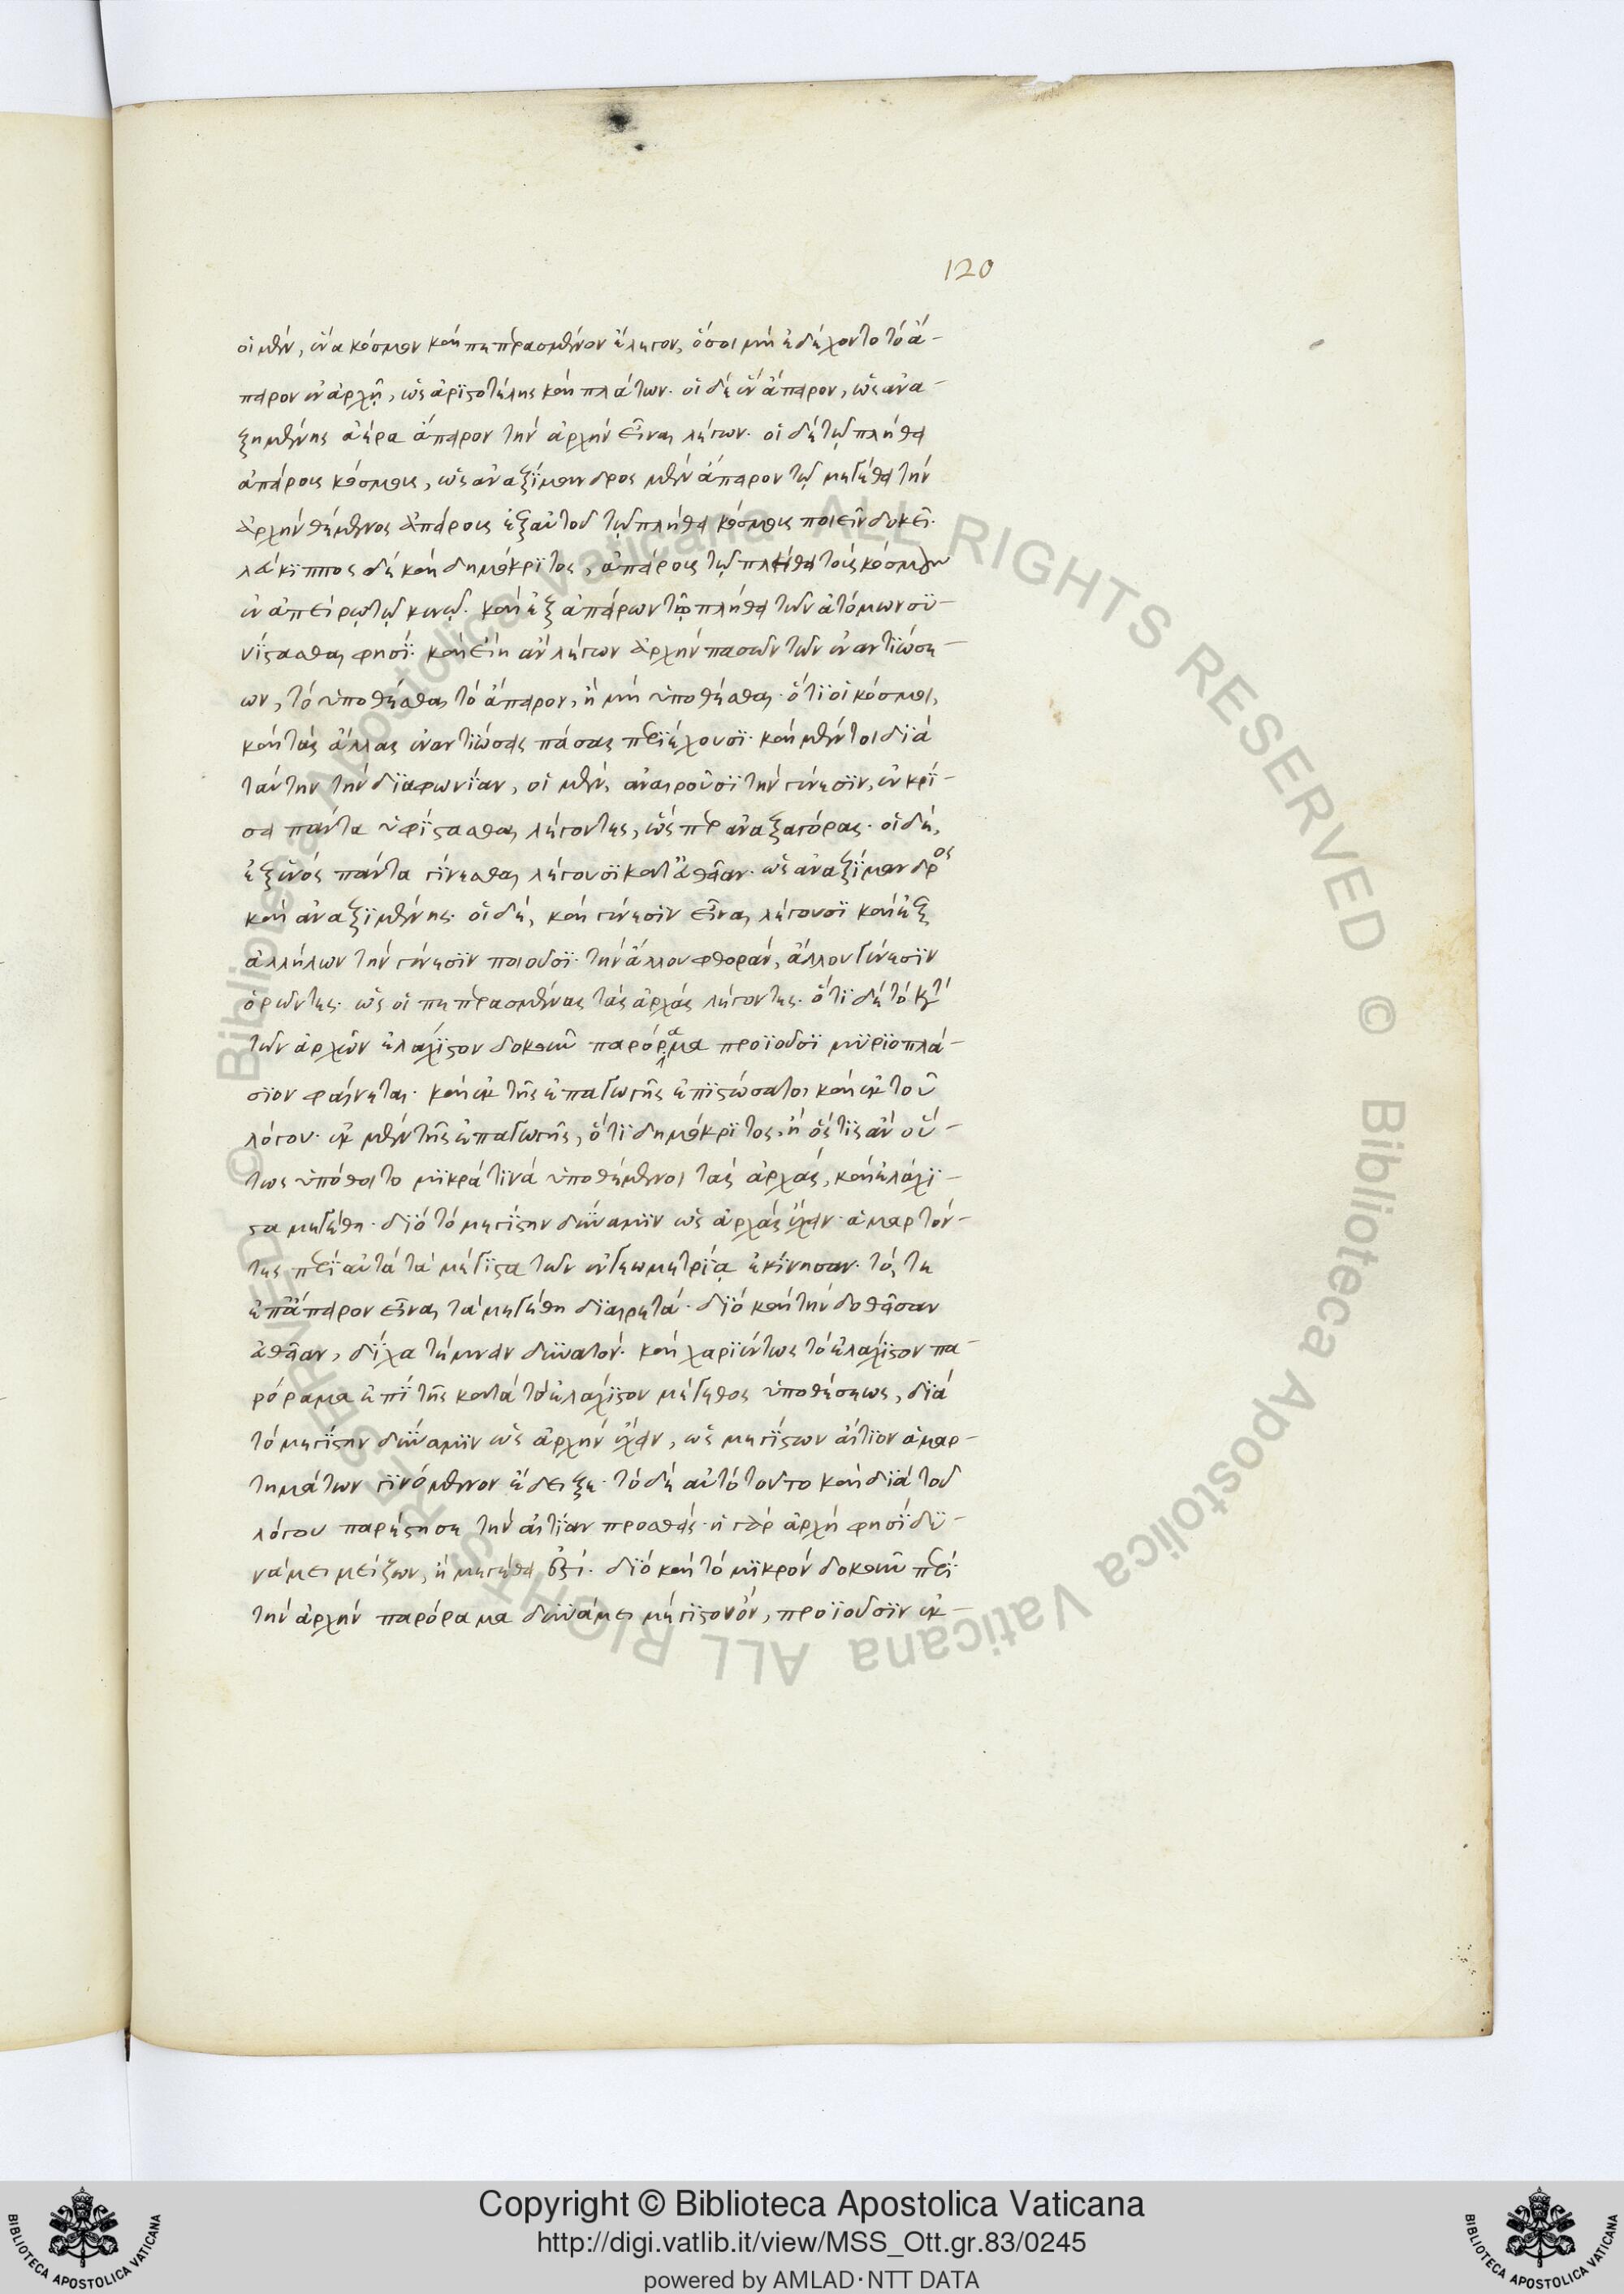 120
οἱ μὲν, ἕνα κόσμον καὶ πεπερασμένον ἔλεγον, ὅσοι μὴ ἐδέχοντο τὸ ἄ-
πειρον ἐν ἀρχῇ, ὡς ἀριστοτέλης καὶ πλάτων. οἱ δὲ ἓν ἄπειρον, ὡς ἀνα-
ξιμένης ἀέρα ἄπειρον τὴν ἀρχὴν εἶναι λέγων. οἱ δὲ τῷ πλήθει
ἀπείρους κόσμους, ὡς ἀναξίμανδρος μὲν ἄπειρον τῷ μεγέθει τὴν
ἀρχὴν θέμενος ἀπείρους ἐξ αὐτοῦ τῷ πλήθει κόσμους ποιεῖν δοκεῖ.
λεύκιππος δὲ καὶ δημόκριτος, ἀπείρους τῷ πλήθει τοὺς κόσμους
ἐν ἀπείρῳ τῷ κενῷ. καὶ ἐξ ἀπείρων τῷ πλήθει τῶν ἀτόμων συ-
νίστασθαι φησί. καὶ εἴη ἂν λέγων ἀρχὴν πασῶν τῶν ἐναντιώσε-
ων, τὸ ὑποθέσθαι τὸ ἄπειρον, ἢ μὴ ὑποθέσθαι. ὅτι οἱ κόσμοι,
καὶ τὰς ἄλλας ἐναντιώσεις πάσας περιέχουσι. καὶ μέντοι διὰ
ταύτην τὴν διαφωνίαν, οἱ μὲν, ἀναιροῦσι τὴν γένεσιν, ἐν κρί-
σει πάντα ὑφίστασθαι λέγοντες, ὥσπερ ἀναξαγόρας. οἱ δὲ,
ἐξ ἑνὸς πάντα γίνεσθαι λέγουσι κατ' εὐθεῖαν. ὡς ἀναξίμανδρος
καὶ ἀναξιμένης. οἱ δὲ, καὶ γένεσιν εἶναι λέγουσι καὶ ἐξ
ἀλλήλων τὴν γένεσιν ποιοῦσι. τὴν ἄλλου φθορὰν, ἄλλου γένεσιν
ὁρῶντες. ὡς οἱ πεπερασμένας τὰς ἀρχὰς λέγοντες. ὅτι δὲ τὸ κατὰ
τῶν ἀρχῶν ἐλάχιστον δοκοῦν παρόραμα προϊοῦσι μυριοπλά-
σιον φαίνεται. καὶ ἐκ τῆς ἐπαγωγῆς ἐπιστώσατο, καὶ ἐκ τοῦ
λόγου. ἐκ μὲν τῆς ἐπαγωγῆς, ὅτι δημόκριτος, ἢ ὅστις ἂν οὕ-
τως ὑπόθοιτο μικρά τινα ὑποθέμενοι τὰς ἀρχὰς, καὶ ἐλάχι-
στα μεγέθη. διὸ τὸ μεγίστην δύναμιν ὡς ἀρχὰς ἔχειν. ἁμαρτόν-
τες περὶ αὐτὰ τὰ μέγιστα τῶν ἐν γεωμετρίᾳ ἐκίνησαν. τό, τε
ἐπ' ἄπειρον εἶναι τὰ μεγέθη διαιρετά. διὸ καὶ τὴν δοθεῖσαν
εὐθεῖαν, δίχα τέμνειν δυνατόν. καὶ χαριέντως τὸ ἐλάχιστον πα-
ρόραμα ἐπὶ τῆς κατὰ τὸ ἐλάχιστον μέγεθος ὑποθέσεως, διὰ
τὸ μεγίστην δύναμιν ὡς ἀρχὴν ἔχειν, ὡς μεγίστων αἴτιον ἁμαρ-
τημάτων γινόμενον ἔδειξε. τὸ δὲ αὐτὸ τοῦτο καὶ διὰ τοῦ
λόγου παρέστησε τὴν αἰτίαν προσθείς. ἡ γὰρ ἀρχή φησί δυ-
νάμει μείζων, ἢ μεγέθει ἐστί. διὸ καὶ τὸ μικρὸν δοκοῦν περὶ
τὴν ἀρχὴν παρόραμα δυνάμει μέγιστον ὂν, προϊοῦσιν ἐκ-
Copyright © Biblioteca Apostolica Vaticana
http://digi.vatlib.it/view/MSS_Ott.gr.83/0245
powered by AMLAD·NTT DATA